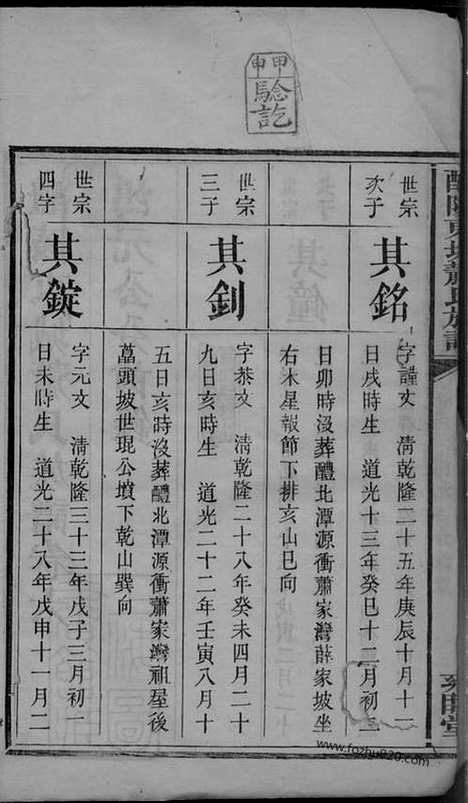 甲申
騐訖
世宗
次子
其銘
字謹文　清乾隆二十五年庚辰十月十二
日戌時生　道光十三年癸巳十二月初三
日卯時沒葬醴北潭源衝蕭家灣薛家坡坐
右木星報節下排亥山巳向
世宗
三子
其釗
字恭文　清乾隆二十八年癸未四月二十
九日亥時生　道光二十二年壬寅八月十
五日亥時沒葬醴北潭源衝蕭家灣祖屋後
藠頭坡世琨公墳下乾山巽向
世宗
四字
其錠
字元文　清乾隆三十三年戊子三月初一
日未時生　道光二十八年戊申十一月二
www.fozhu920.com